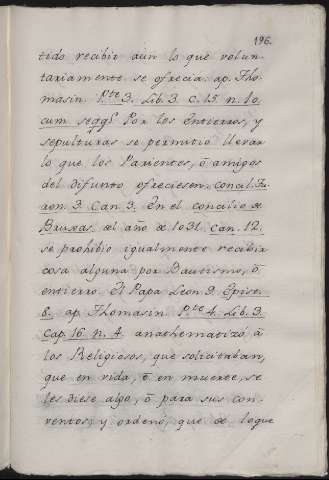 196.
tido recibir aun lo que volun-
tariamente se ofrecia. ap. Tho-
masin. P.te 3. Lib. 3. C. 15. n. 10.
cum seqq.s Por los Entierros, y
sepulturas se permitió llevar
lo que los Parientes, ò amigos
del difunto ofreciesen. Concil. Tu-
ron. 3. Can. 3. En el concilio de
del año de 1031. Can. 12.
se prohibio igualmente recibir
cosa alguna por Bautismo, ò
entierro. El Papa Leon 9. Epist.
8. ap. Thomasin. P.te 4. Lib. 3.
Cap. 16. n. 4. anathematizó à
los Religiosos, que solicitaban,
que en vida, ò en muerte, se
les diese algo, ò para sus con-
ventos; y ordenó, que de loque